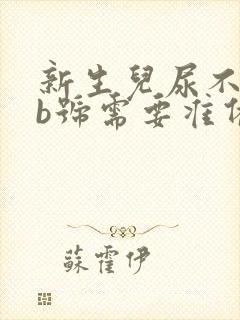 新生兒尿不
b號需要准
蘇霍伊